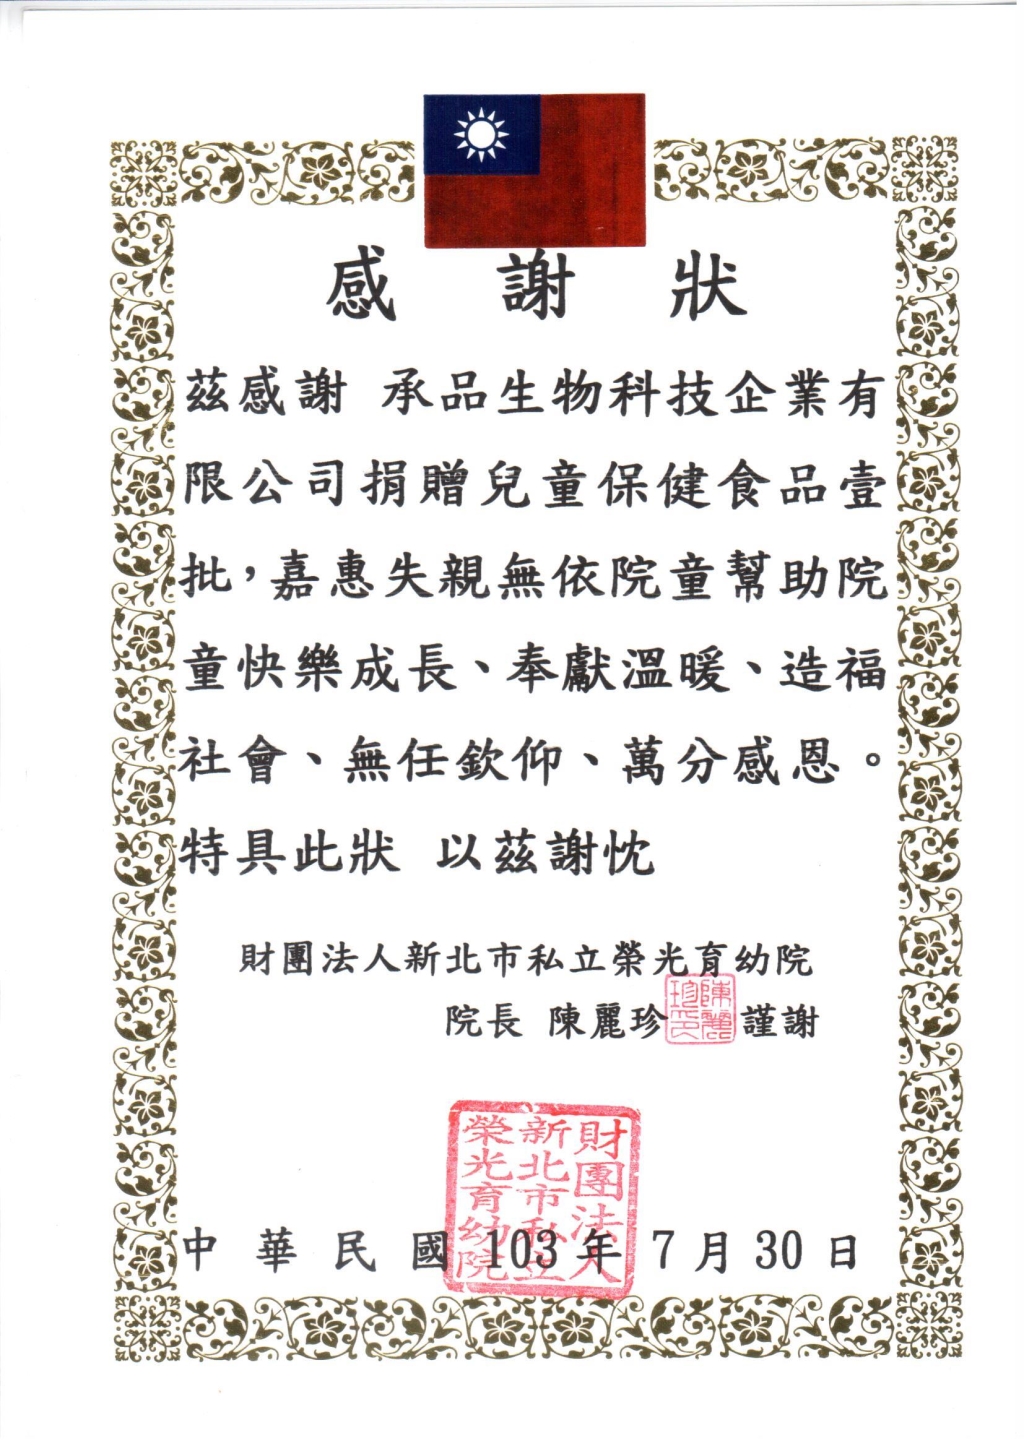 感謝狀
茲感謝 承品生物科技企業有
限公司捐贈兒童保健食品壹
批，嘉惠失親無依院童幫助院
童快樂成長、奉獻溫暖、造福
社會、無任欽仰、萬分感恩。
特具此狀 以茲謝忱
財團法人新北市私立榮光育幼院
院長 陳麗珍 謹謝
陳麗珍印
財團法人新北市私立榮光育幼院
中華民國 103 年 7 月 30 日